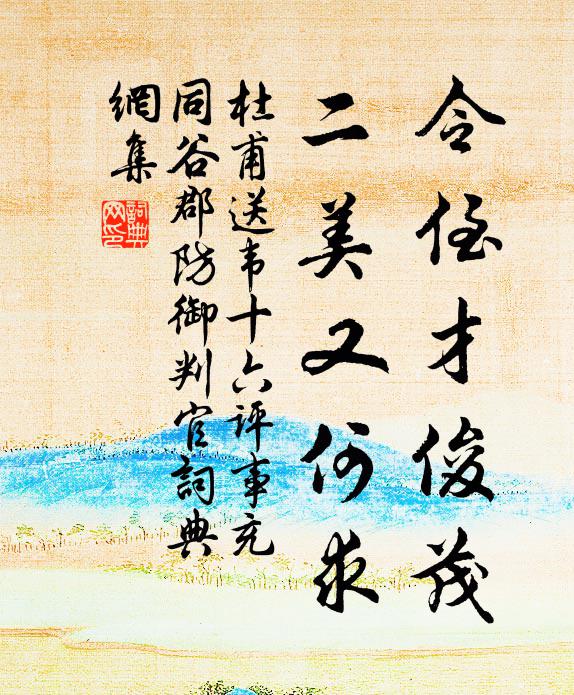 令侄才俊茂
二美又何求
杜甫送韦十六评事充
同谷郡防御判官词典
網集
詞典網印